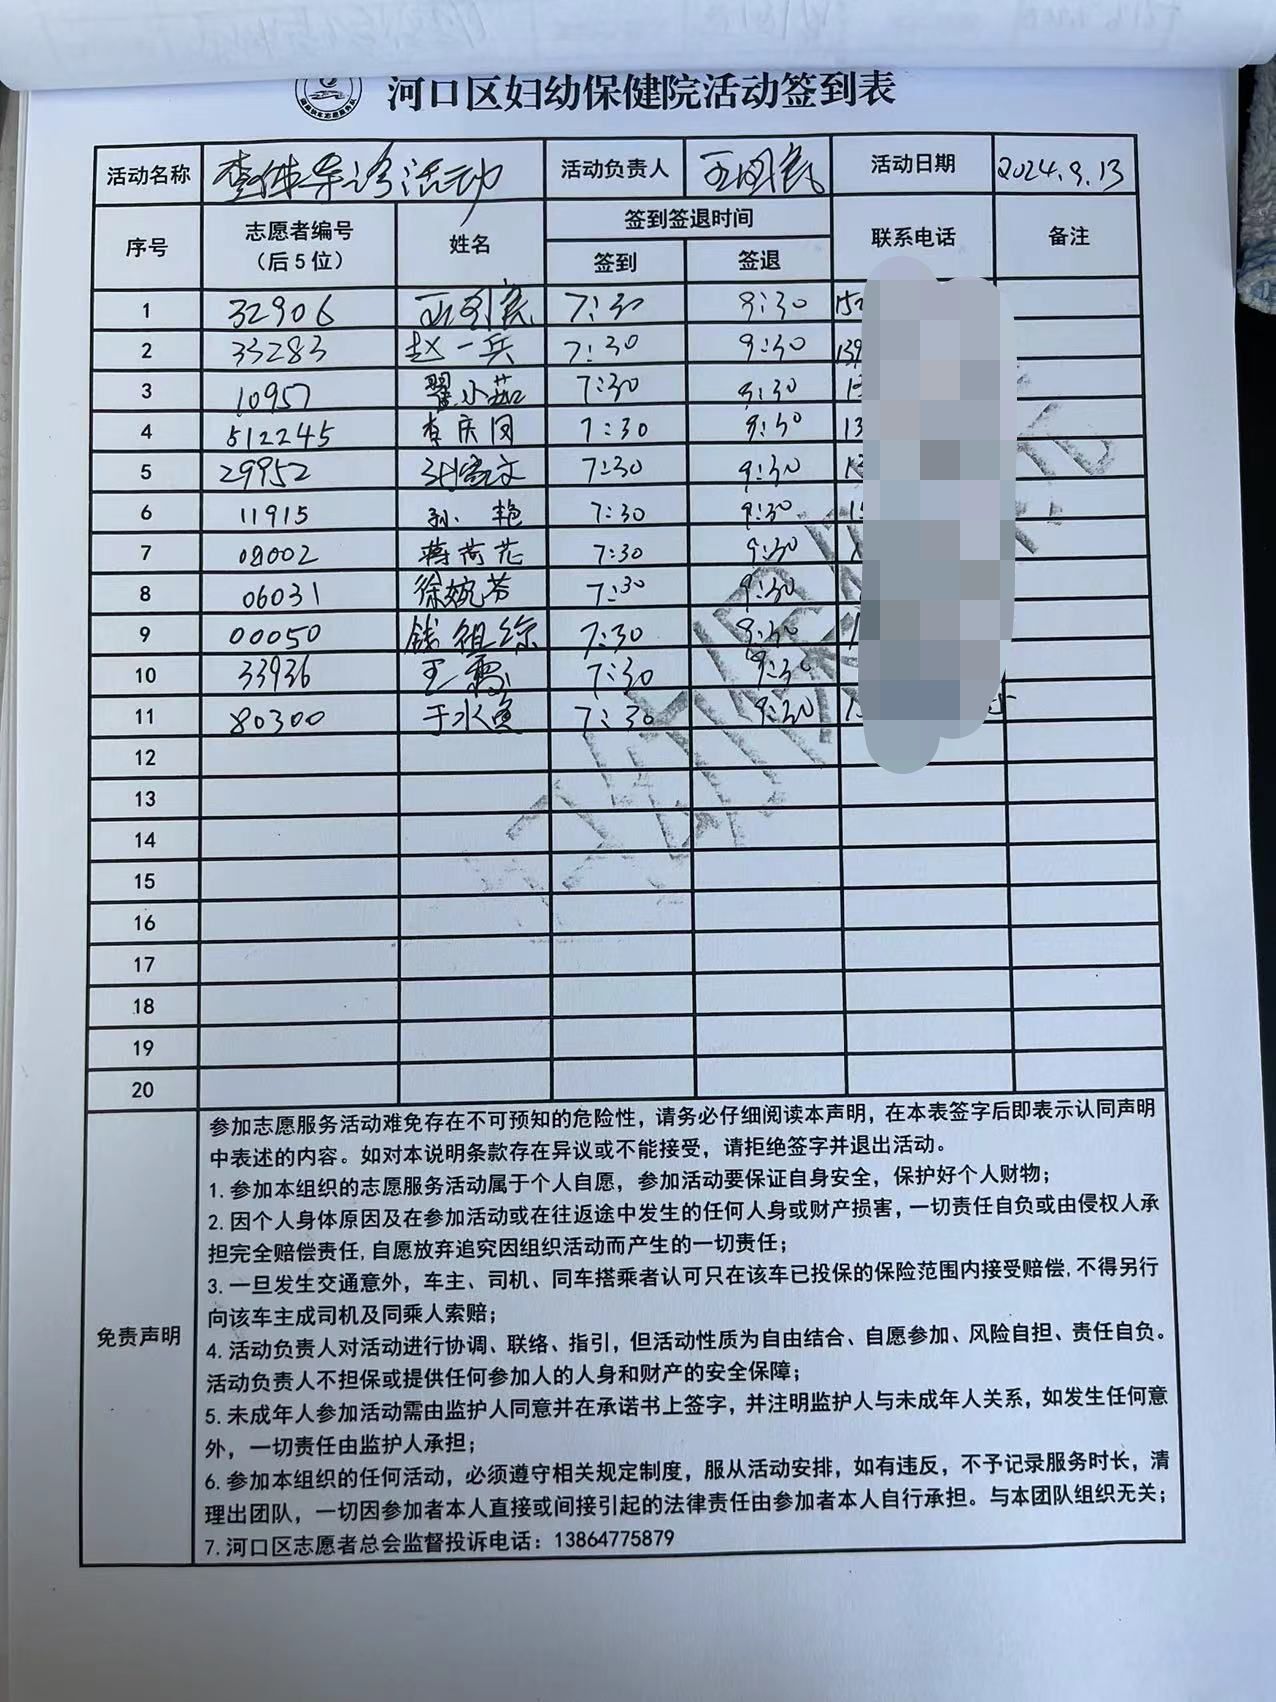 河口区妇幼保健院活动签到表
活动名称 查体导诊活动 活动负责人 活动日期 2024.9.13
序号 志愿者编号（后5位） 姓名 签到签退时间 联系电话 备注
签到 签退
1 32906 7:30 9:30
2 33283 赵一兵 7:30 9:30
3 10957 翟小茹 7:30 9:30
4 512245 李庆国 7:30 9:30
5 29952 7:30 9:30
6 11915 孙艳 7:30 9:30
7 08002 蒋荷花 7:30 9:30
8 06031 徐婉芳 7:30 9:30
9 00050 钱祖综 7:30 9:30
10 33936 王霞 7:30 9:30
11 80300 于水鱼 7:30 9:30
12
13
14
15
16
17
18
19
20
免责声明
参加志愿服务活动难免存在不可预知的危险性，请务必仔细阅读本声明，在本表签字后即表示认同声明
中表述的内容。如对本说明条款存在异议或不能接受，请拒绝签字并退出活动。
1.参加本组织的志愿服务活动属于个人自愿，参加活动要保证自身安全，保护好个人财物；
2.因个人身体原因及在参加活动或在往返途中发生的任何人身或财产损害，一切责任自负或由侵权人承
担完全赔偿责任,自愿放弃追究因组织活动而产生的一切责任；
3.一旦发生交通意外，车主、司机、同车搭乘者认可只在该车已投保的保险范围内接受赔偿,不得另行
向该车主成司机及同乘人索赔；
4.活动负责人对活动进行协调、联络、指引，但活动性质为自由结合、自愿参加、风险自担、责任自负。
活动负责人不担保或提供任何参加人的人身和财产的安全保障；
5.未成年人参加活动需由监护人同意并在承诺书上签字，并注明监护人与未成年人关系，如发生任何意
外，一切责任由监护人承担；
6.参加本组织的任何活动，必须遵守相关规定制度，服从活动安排，如有违反，不予记录服务时长，清
理出团队，一切因参加者本人直接或间接引起的法律责任由参加者本人自行承担。与本团队组织无关；
7.河口区志愿者总会监督投诉电话：13864775879